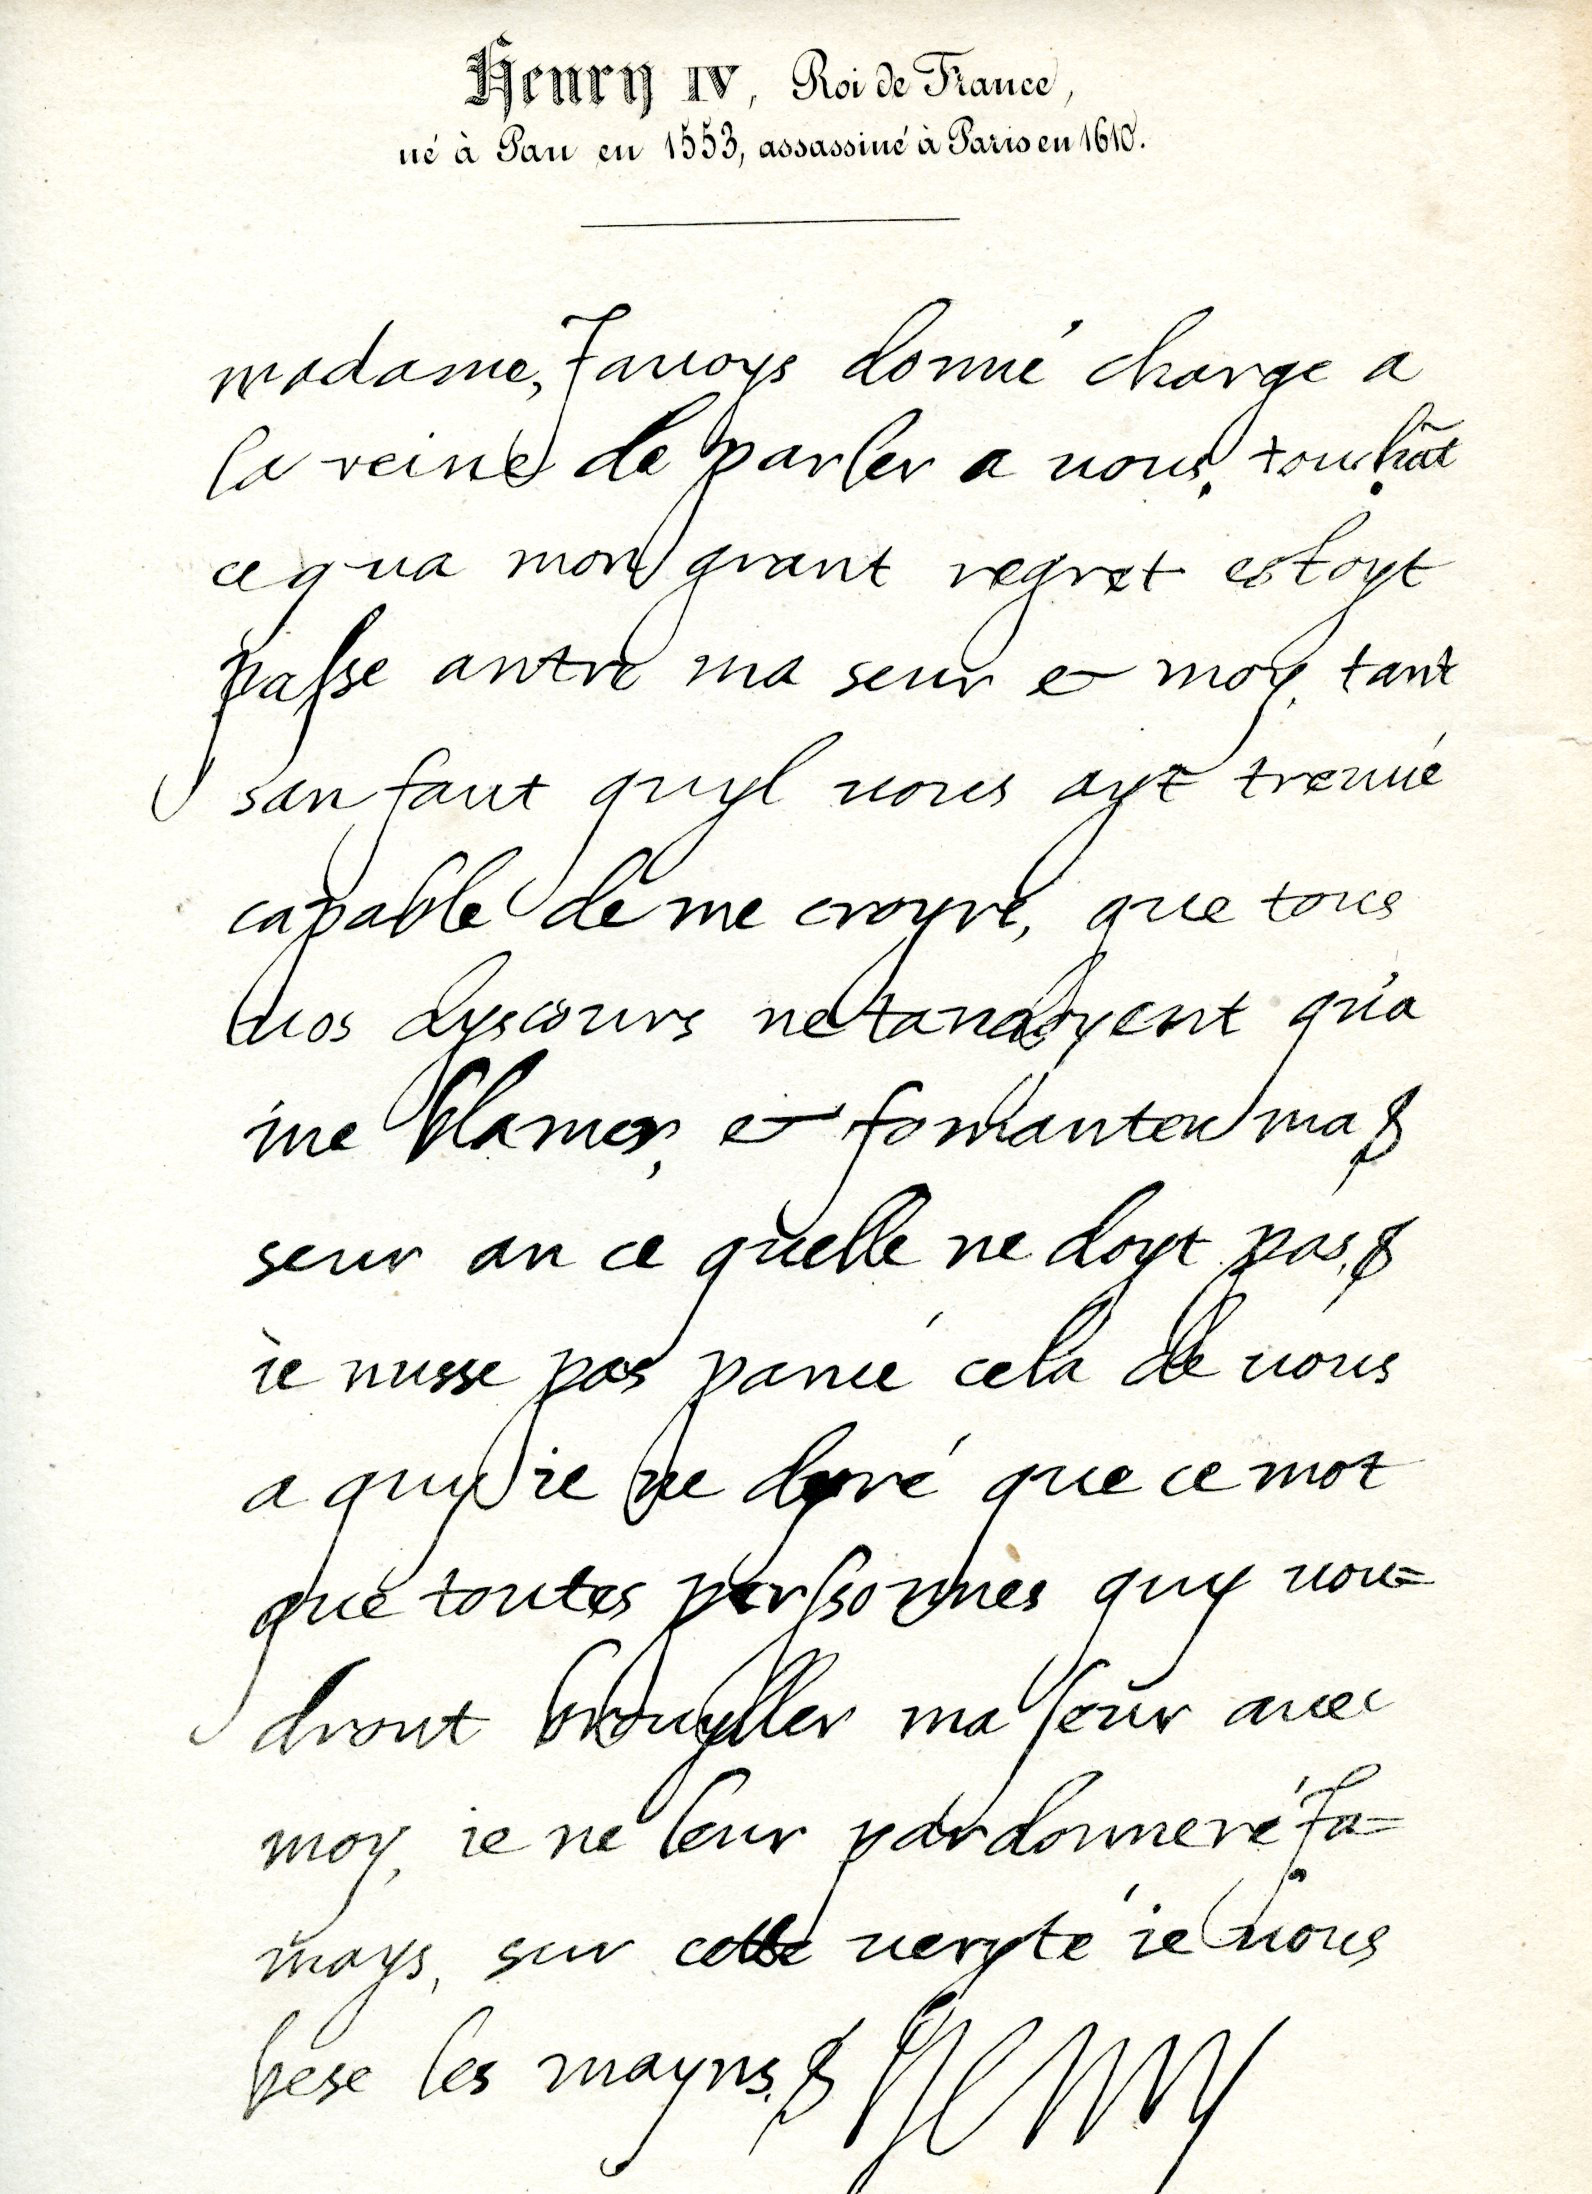 Henry IV, Roi de France,
né à Pau en 1553, assassiné à Paris en 1610.
madame, Jauoys donné charge a
la reine de parler a uous, touchãt
ce qua mon grant regret estoyt
passe antre ma seur & moy, tant
san faut quyl uous ayt treuué
capable de me croyre, que tous
uos dyscours ne tandoyent qu'a
me blamer, & fomanter ma
seur an ce quelle ne doyt pas,
ie nusse pas pansé cela de uous
a quy ie ne dyré que ce mot
que toutes personnes quy uou=
dront brouyller ma seur auec
moy, ie ne leur pardonneré Ja=
mays, sur cette ueryté ie uous
bese les mayns, Henry